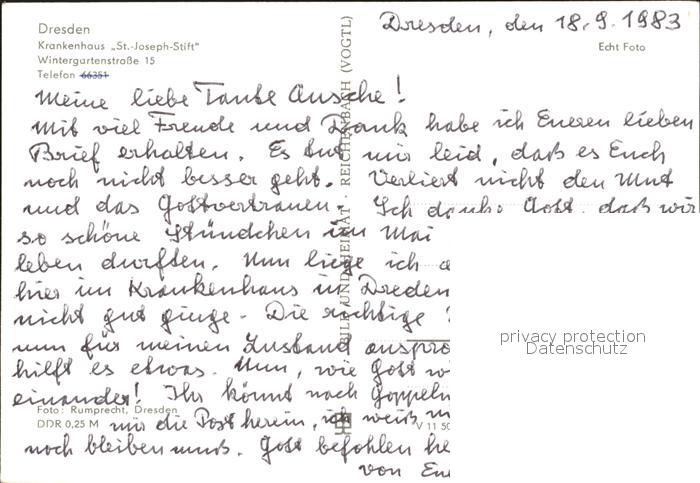 Dresden
Krankenhaus „St.-Joseph-Stift"
Wintergartenstraße 15
Telefon 66351
Dresden, den 18.9.1983
Echt Foto
Meine liebe Tante Ansche!
Mit viel Freude und Dank habe ich Eueren lieben
Brief erhalten. Es tut mir leid, daß es Euch
noch nicht besser geht. Verliert nicht den Mut
und das Gottvertrauen. Ich danke Gott, daß wir
so schöne Stündchen im Mai
leben durften. Nun liege ich
hier im Krankenhaus in Dreden
nicht gut ginge. Die richtige
nun für meinen Zustand
hilft es etwas. Nun, wie Gott
einander! Ihr könnt nach Goppeln
mir die Post herein, ich weiß
noch bleiben muß. Gott befohlen
von
BILD UND HEIMAT · REICHENBACH (VOGTL)
Foto: Rumprecht, Dresden
DDR 0,25 M
V 11 50
privacy protection
Datenschutz